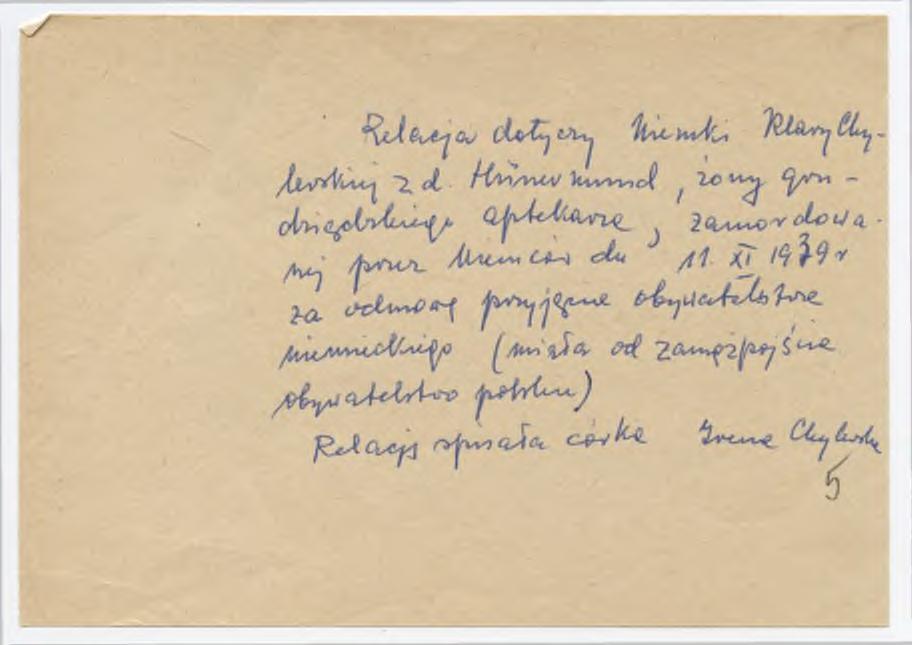 Relacja dotyczy Niemki Klary Chy-
lewskiej z d. Hünermund, żony gru-
dziądzkiego aptekarza, zamordowa-
nej przez Niemców dn 11. XI 1939 r
za odmowę przyjęcia obywatelstwa
niemieckiego (miała od zamążpójścia
obywatelstwo polskie)
Relację spisała córka Irena Chylewska
5